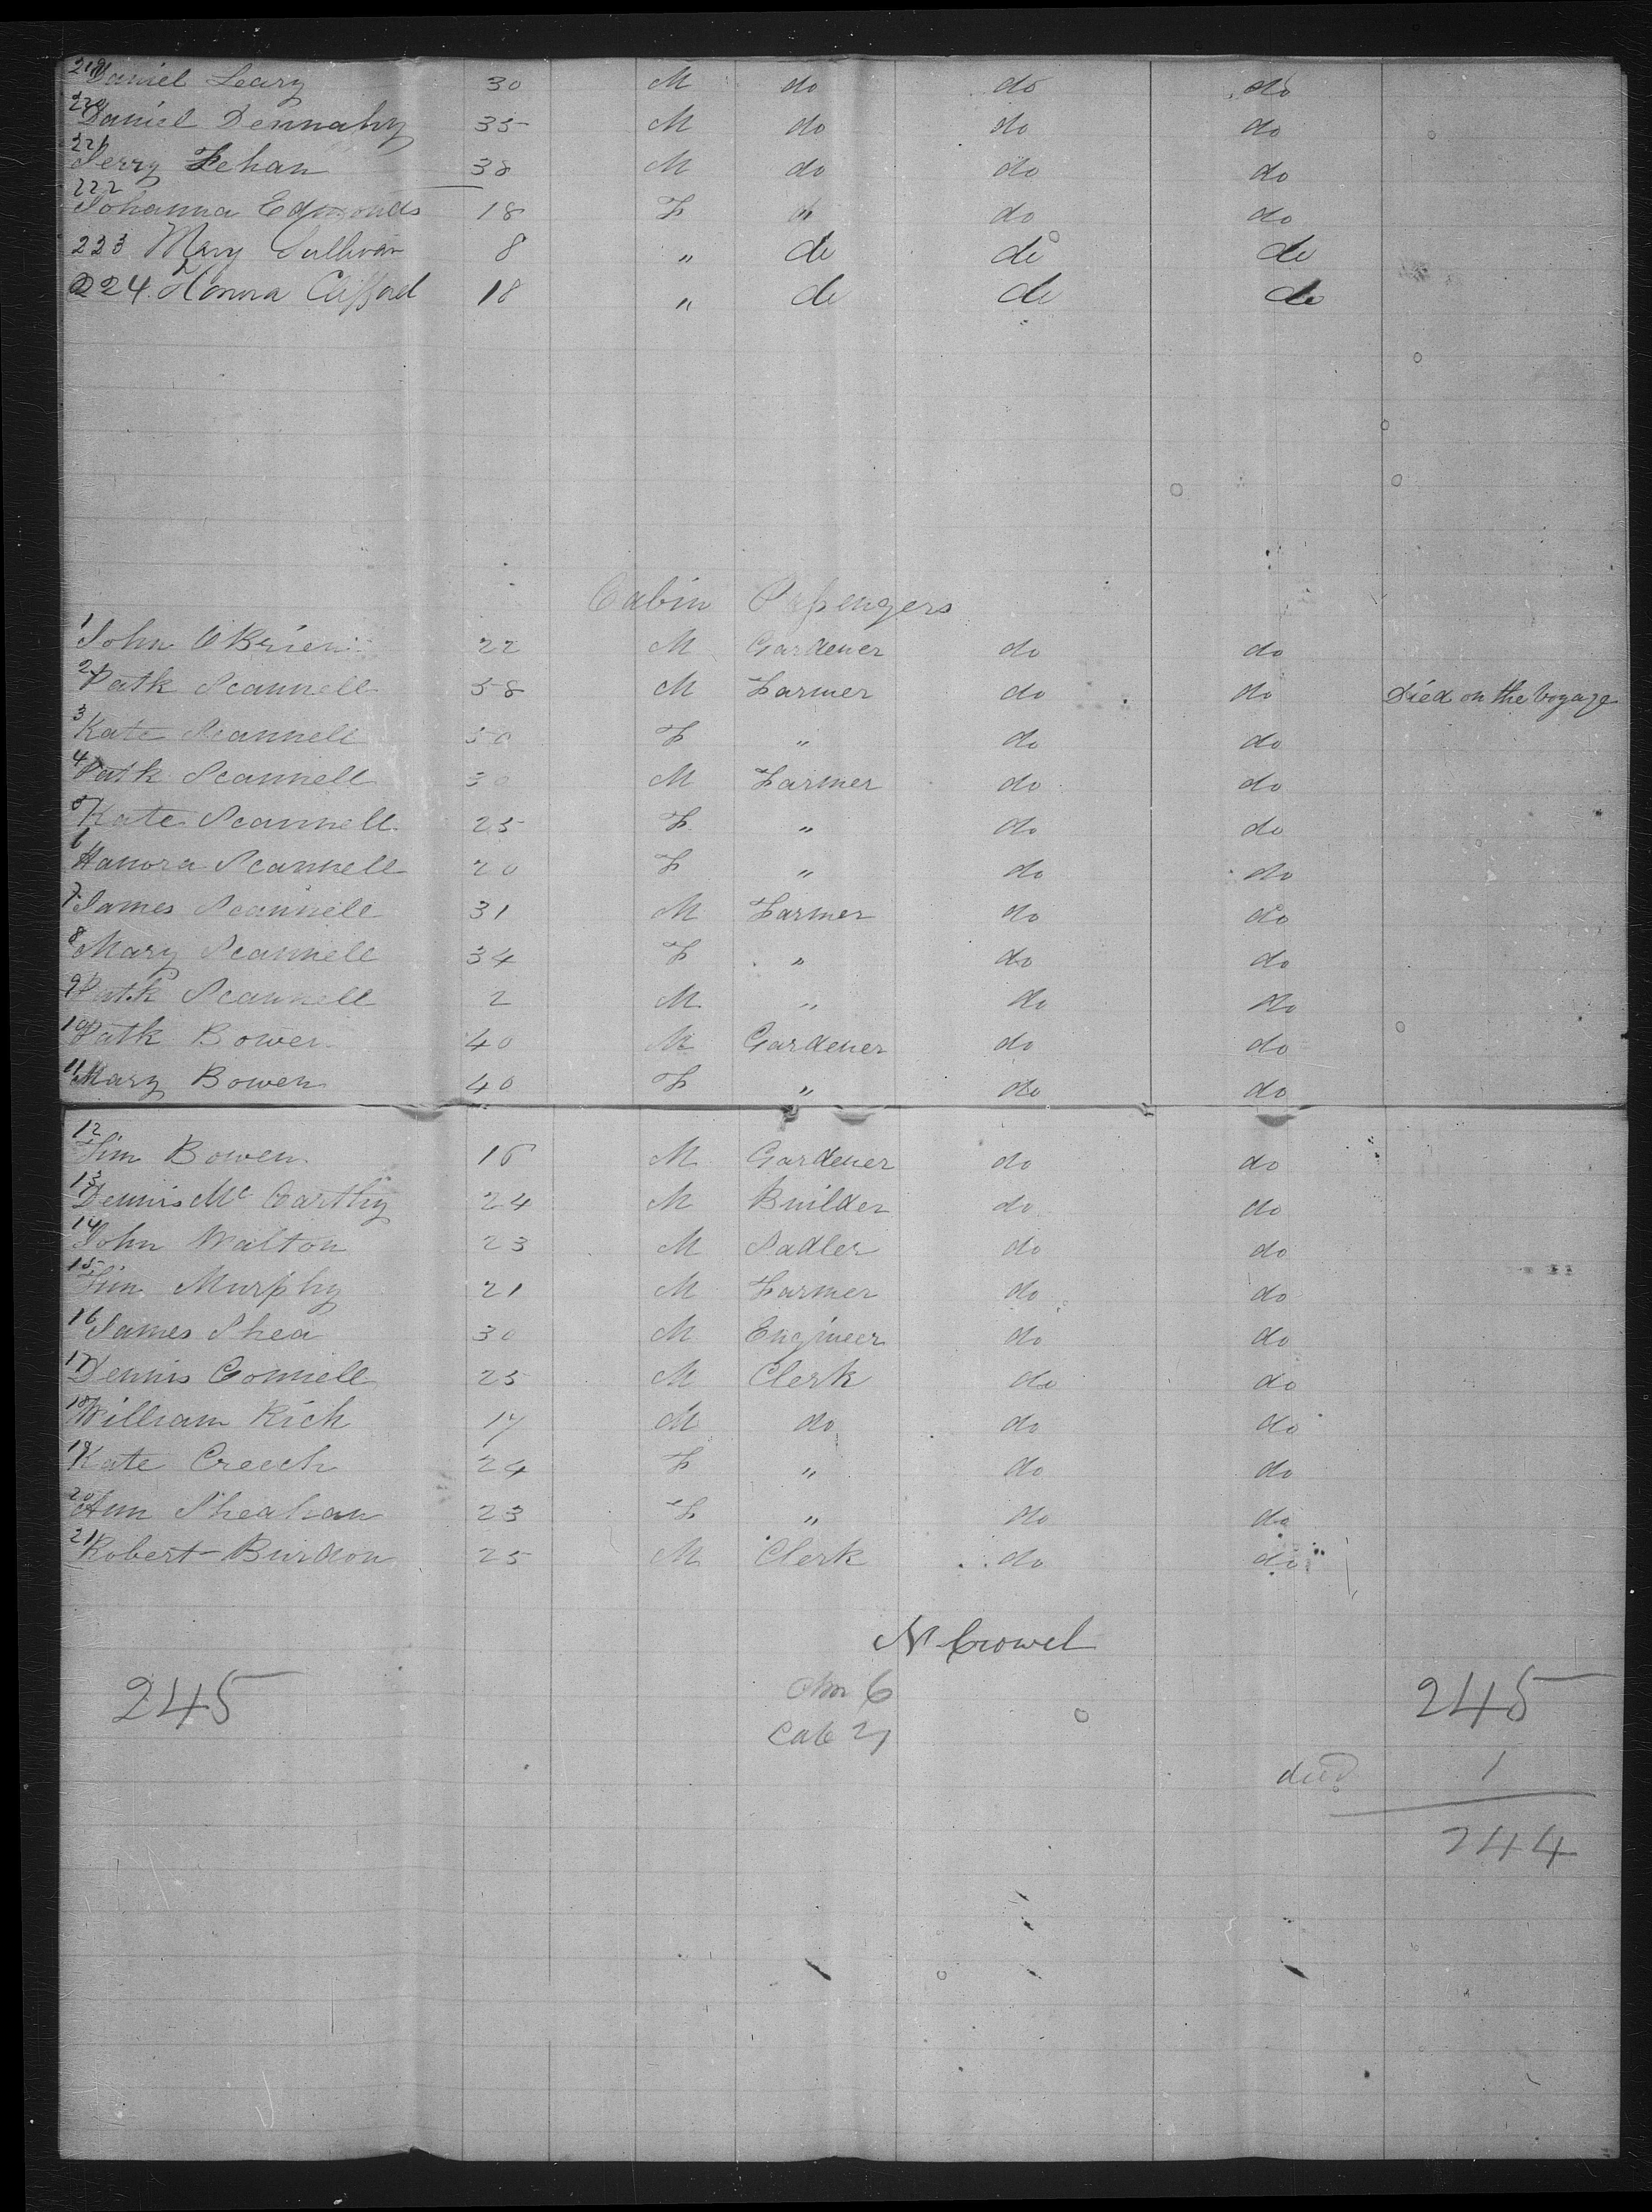 219 Daniel Leary 30 M do do do
220 Daniel Dennahy 35 M do do do
221 Jerry Fehan 38 M do do do
222 Johanna Edmonds 18 F do do
223 Mary Sullivan 8 " do do do
224 Honora Clifford 18 " do do do
Cabin Passengers
1 John O'Brien 22 M Gardener do do
2 Patk Scannell 58 M Farmer do do Died on the Voyage
3 Kate Scannell 50 F " do do
4 Patk Scannell 30 M Farmer do do
5 Kate Scannell 25 F " do do
6 Hanora Scannell 20 F " do do
7 James Scannell 31 M Farmer do do
8 Mary Scannell 34 F " do do
9 Patk Scannell 2 M " do do
10 Patk Bowen 40 M Gardener do do
11 Mary Bowen 40 F " do do
12 Tim Bowen 16 M Gardener do do
13 Dennis Mc Carthy 24 M Builder do do
14 John Walton 23 M Sadler do do
15 Tim Murphy 21 M Farmer do do
16 James Shea 30 M Engineer do do
17 Dennis Connell 25 M Clerk do do
18 William Rich 17 M do do do
19 Kate Creech 24 F " do do
20 Ann Sheahan 23 F " do do
21 Robert Burdon 25 M Clerk do do
N Crowel
245 6 245
Cab 21
died 1
244